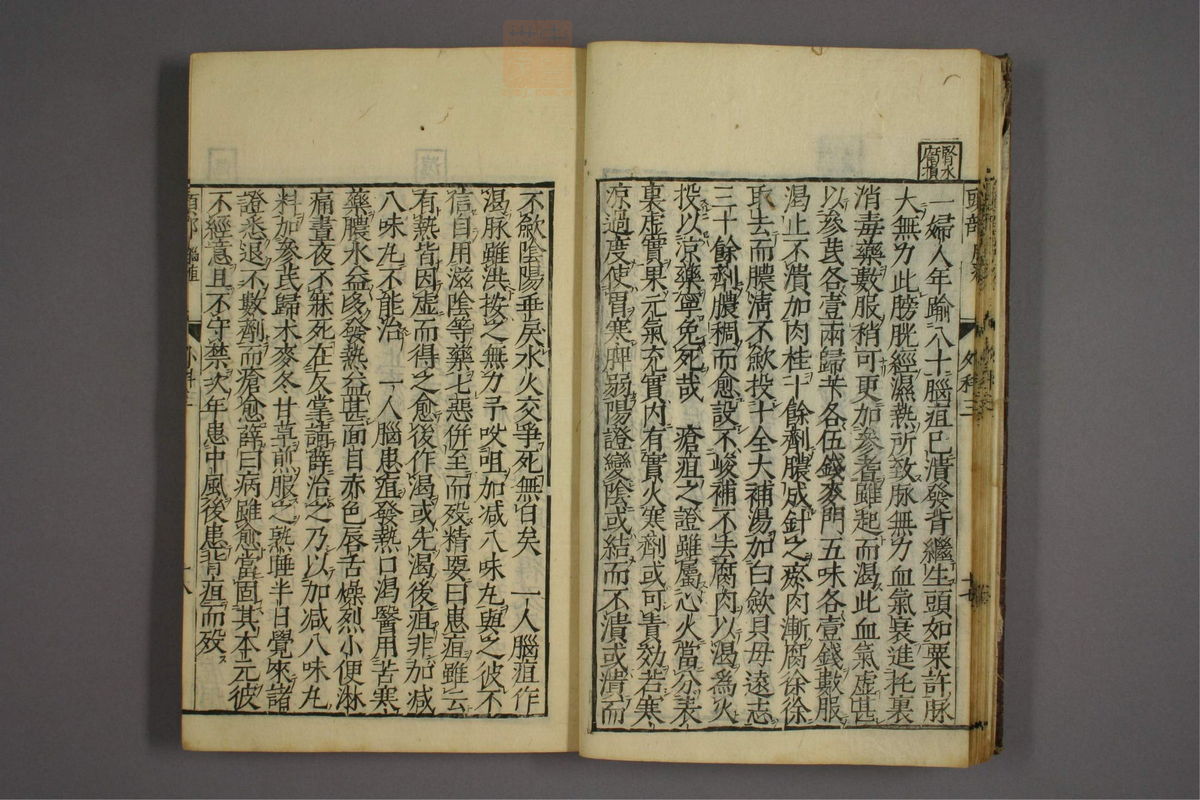 腎水
腐損
一婦人年踰八十腦疽已潰發背繼生頭如粟許脉
大無力此膀胱經濕熱所致脉無力血氣衰進托裏
消毒藥數服稍可更加參耆雖起而渴此血氣虛甚
以參芪各壹兩歸芐各伍錢麥門五味各壹錢數服
渴止不潰加肉桂十餘劑膿成針之瘀肉漸腐徐徐
取去而膿清不歛投十全大補湯加白歛貝母遠志
三十餘劑膿稠而愈設不峻補不去腐肉以渴爲火
投以凉藥寧免死哉 瘡疽之證雖屬心火當分表
裏虛實果元氣充實內有實火寒劑或可責効若寒
凉過度使胃寒脾弱陽證變陰或結而不潰或潰而
不歛陰陽乖戾水火交爭死無日矣 一人腦疽作
渴脉雖洪按之無力予㕮咀加減八味丸與之彼不
信自用滋陰等藥七惡併至而歿精要曰患疽雖云
有熱皆因虛而得之愈後作渴或先渴後疽非加減
八味丸不能治 一人腦患疽發熱口渴醫用苦寒
藥膿水益多發熱益甚面目赤色唇舌燥烈小便淋
痛晝夜不寐死在反掌請薛治之乃以加減八味丸
料加參芪歸朮麥冬甘草煎服之熟睡半日覺來諸
證悉退不數劑而瘡愈薛曰病雖愈當固其本元彼
不經意且不守禁次年患中風後患背疽而歿
頭部 腦疽
外科三
十八